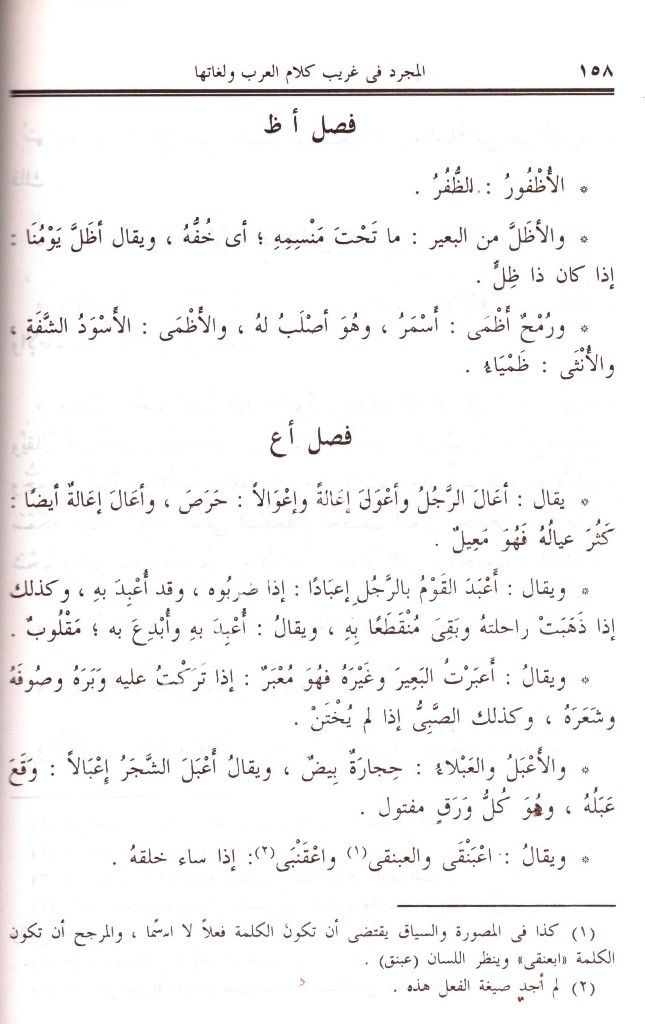 ١٥٨ المجرد فى غريب كلام العرب ولغاتها
فصل أ ظ
* الأُظْفُورُ : الظُّفُرُ .
* والأظَلَّ من البعير : ما تَحْتَ مَنْسِمِهِ ؛ أى خُفُّهُ ، ويقال أظَلَّ يَوْمُنَا :
إذا كان ذا ظِلٍّ .
* ورُمْحٌ أَظْمَى : أَسْمَرُ ، وهُوَ أصْلَبُ لهُ ، والأَظْمَى : الأسْوَدُ الشَّفَةِ ،
والأُنْثَى : ظَمْيَاءُ .
فصل أ ع
* يقال : أعَالَ الرَّجُلُ وأعْوَلَ إعَالةً وإعْوَالاً : حَرَصَ ، وأعَالَ إعَالةٌ أيضًا :
كَثُرَ عيالُهُ فَهُوَ مَعِيلٌ .
* ويقال : أَعْبَدَ القَوْمُ بالرَّجُلِ إعبَادًا : إذا ضربُوه ، وقد أُعْبِدَ بهِ ، وكذلك
إذا ذَهَبَتْ راحلتهُ وبَقِىَ مُنْقَطَعًا بِهِ ، ويقالُ : أُعْبِدَ بهِ وأُبْدِعَ به ؛ مَقْلُوبٌ .
* ويقالُ : أَعبَرْتُ البَعِيرَ وغَيْرَهُ فهُوَ مُعْبَرٌ : إذا تَرَكْتُ عليه وَبَرَهُ وصُوفَهُ
وشَعَرَهُ ، وكذلك الصَّبِىُّ إذا لم يُخْتَنْ .
* والأَعْبَلُ والعَبْلاءُ : حِجارَةٌ بِيضٌ ، ويقالُ أعْبَلَ الشَّجَرُ إعْبَالاً : وَقَعَ
عَبَلُهُ ، وهُوَ كُلُّ وَرَقٍ مفتول .
* ويقالُ : اعْبَنْقَى والعبنقى(١) واعْقَنْبَى(٢): إذا ساء خلقهُ .
(١) كذا فى المصورة والسياق يقتضى أن تكون الكلمة فعلاً لا اسمًا ، والمرجح أن تكون
الكلمة «ابعنقى» وينظر اللسان (عبنق) .
(٢) لم أجد صيغة الفعل هذه .